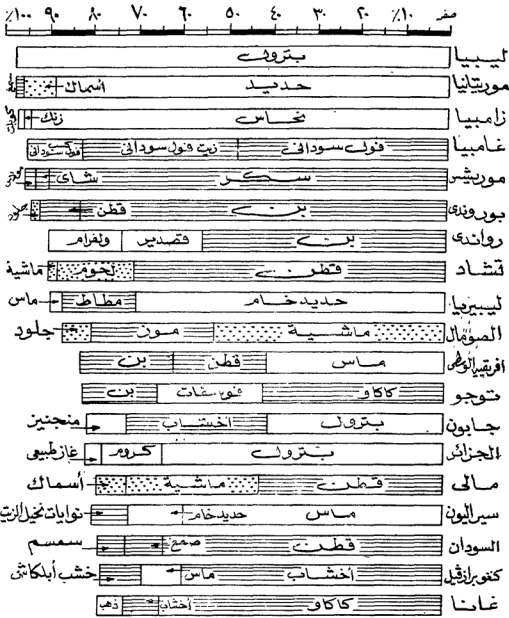 صفر ٪١٠ ٢٠ ٣٠ ٤٠ ٥٠ ٦٠ ٧٠ ٨٠ ٩٠ ٪١٠٠
ليبيا بترول
موريتانيا حديد أسماك
زامبيا نحاس زنك
غامبيا فول سوداني زيت فول سوداني
موريشس سكر شاى
بوروندى بن قطن
رواندى بن قصدير ولفرام
تشاد قطن لحوم ماشية
ليبيريا حديد خام مطاط ماس
الصومال ماشية موز جلود
افريقيا الوسطى ماس قطن بن
توجو كاكاو فوسفات بن
جابون بترول أخشاب منجنيز
الجزائر بترول كروم غاز طبيعى
مالى قطن ماشية أسماك
سيراليون ماس حديد خام نوايات نخيل الزيت
السودان قطن صمغ سمسم
كنغو برازفيل أخشاب ماس خشب أبلكاش
غانا كاكاو أخشاب ذهب